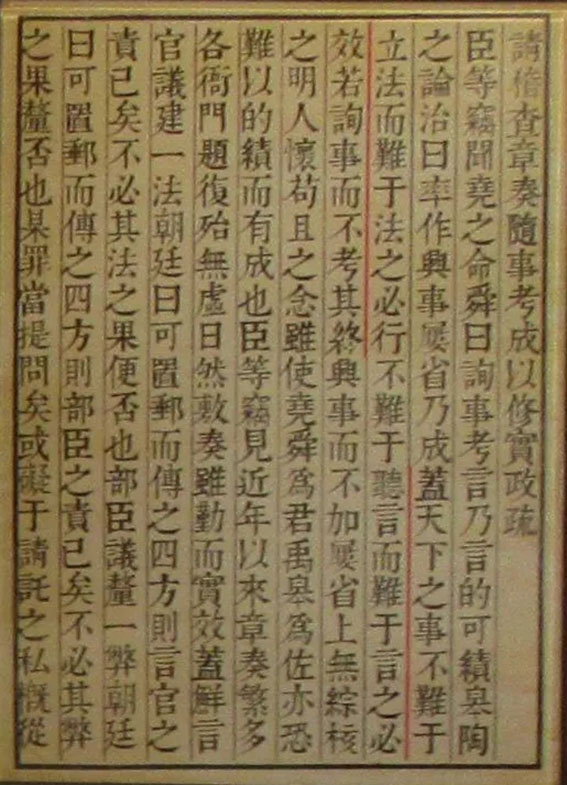 請稽查章奏隨事考成以修實政疏
臣等竊聞堯之命舜曰詢事考言乃言的可績皋陶
之論治曰率作興事屢省乃成蓋天下之事不難于
立法而難于法之必行不難于聽言而難于言之必
效若詢事而不考其終興事而不加屢省上無綜核
之明人懷苟且之念雖使堯舜為君禹皋為佐亦恐
難以的績而有成也臣等竊見近年以來章奏繁多
各衙門題復殆無虛日然敷奏雖勤而實效蓋鮮言
官議建一法朝廷曰可置郵而傳之四方則言官之
責已矣不必其法之果便否也部臣議釐一弊朝廷
曰可置郵而傳之四方則部臣之責已矣不必其弊
之果釐否也某罪當提問矣或礙于請託之私概從